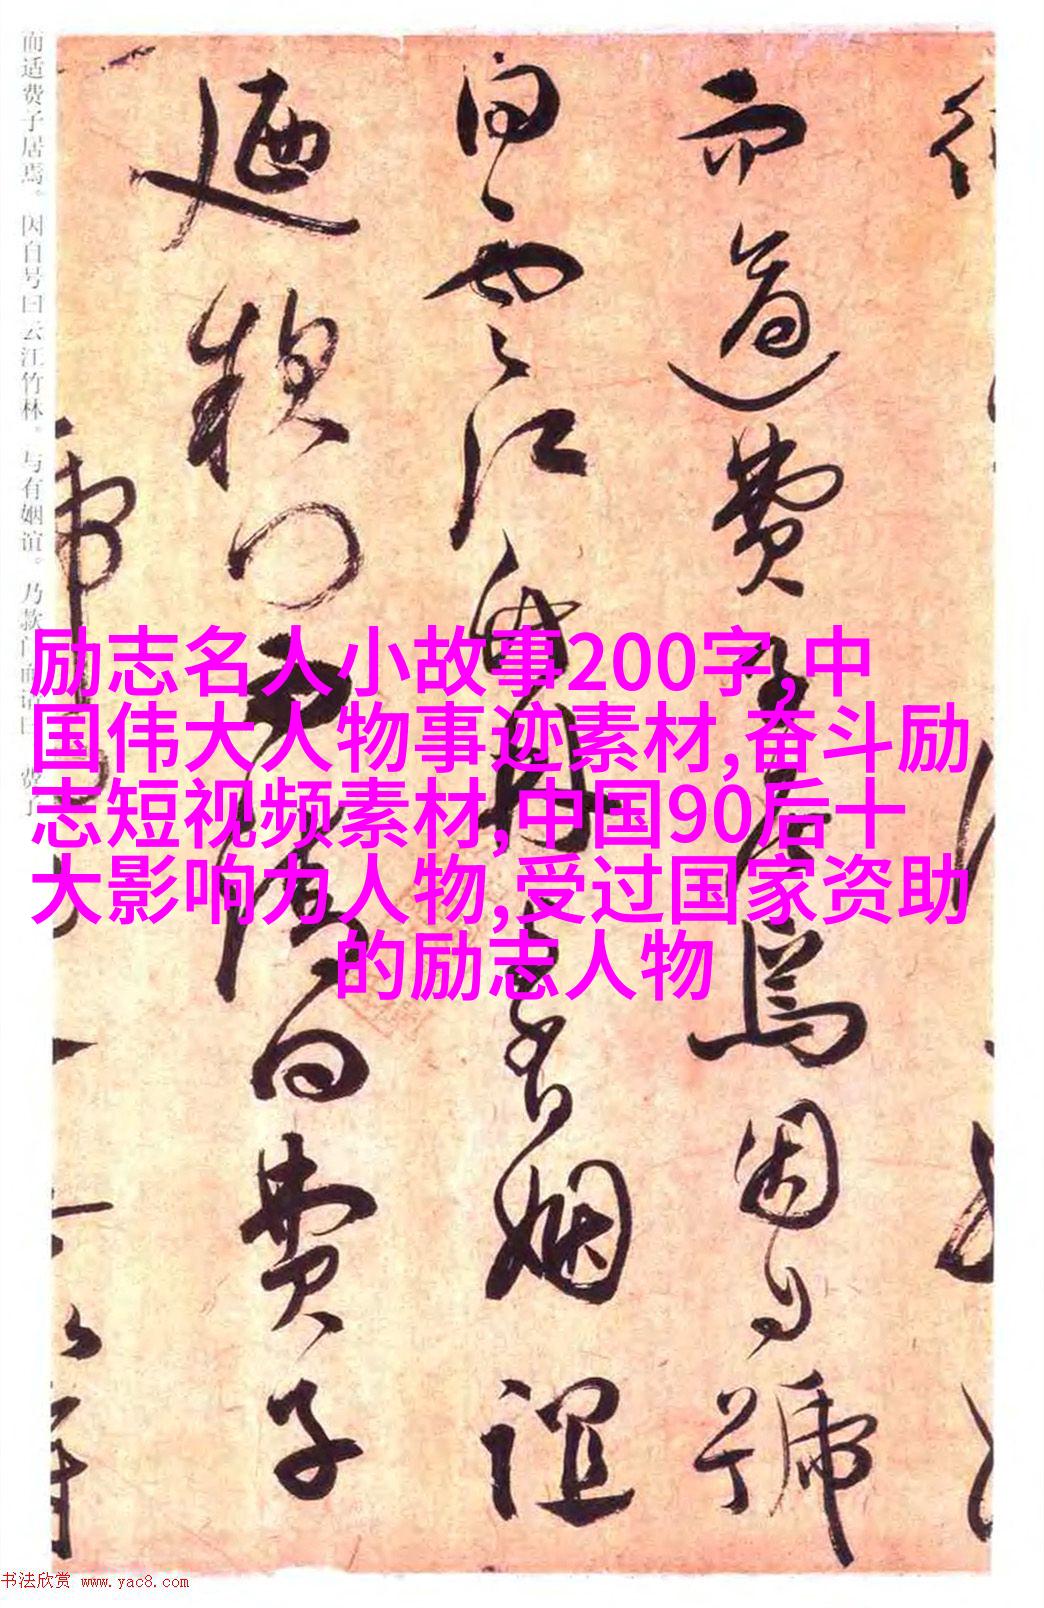 而適費子居焉因自號
曰雲江竹有姻誼
迺款門而請曰費子
而适费子居焉。因自号曰云江竹林。与有姻谊。乃款门而请曰 费子
励志名人小故事200字,中
国伟大人物事迹素材,奋斗励
志短视频素材,中国90后十
大影响力人物,受过国家资助
的励志人物
书法欣赏 www.yac8.com